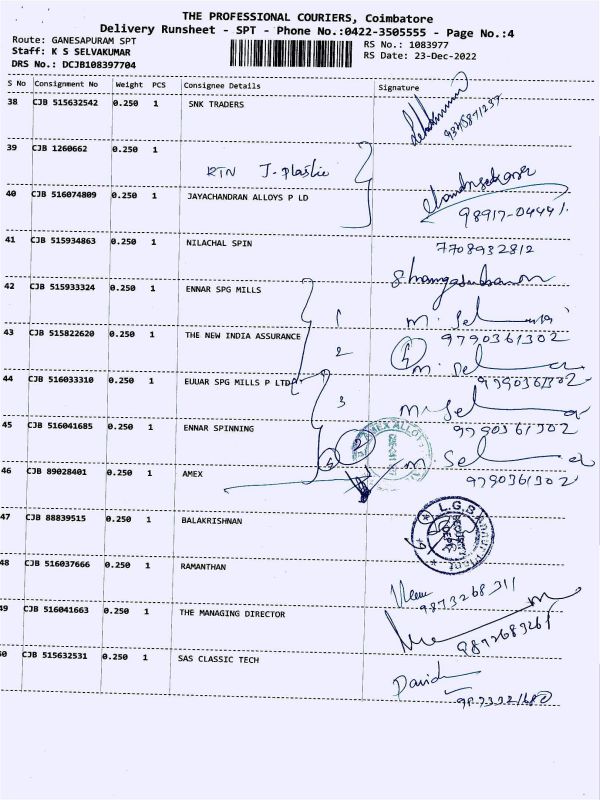 THE PROFESSIONAL COURIERS, Coimbatore
Delivery Runsheet - SPT - Phone No.:0422-3505555 - Page No.:4
Route: GANESAPURAM SPT
RS No.: 1083977
Staff: K S SELVAKUMAR
RS Date: 23-Dec-2022
DRS No.: DCJB108397704
S No Consignment No Weight PCS Consignee Details Signature
38 CJB 515632542 0.250 1 SNK TRADERS
39 CJB 1260662 0.250 1
RTN J-plastic
40 CJB 516074809 0.250 1 JAYACHANDRAN ALLOYS P LD
98917-04441
41 CJB 515934863 0.250 1 NILACHAL SPIN 7708932812
42 CJB 515933324 0.250 1 ENNAR SPG MILLS
1 M. Sel
9790361302
43 CJB 515822620 0.250 1 THE NEW INDIA ASSURANCE
2 M. Sel
9790361302
44 CJB 516033310 0.250 1 EUUAR SPG MILLS P LTD
3 M. Sel
9790361302
45 CJB 516041685 0.250 1 ENNAR SPINNING
2 M. Sel
9790361302
46 CJB 89028401 0.250 1 AMEX
47 CJB 88839515 0.250 1 BALAKRISHNAN
L.G.S
48 CJB 516037666 0.250 1 RAMANTHAN
9873268311
49 CJB 516041663 0.250 1 THE MANAGING DIRECTOR
9892683261
50 CJB 515632531 0.250 1 SAS CLASSIC TECH
David